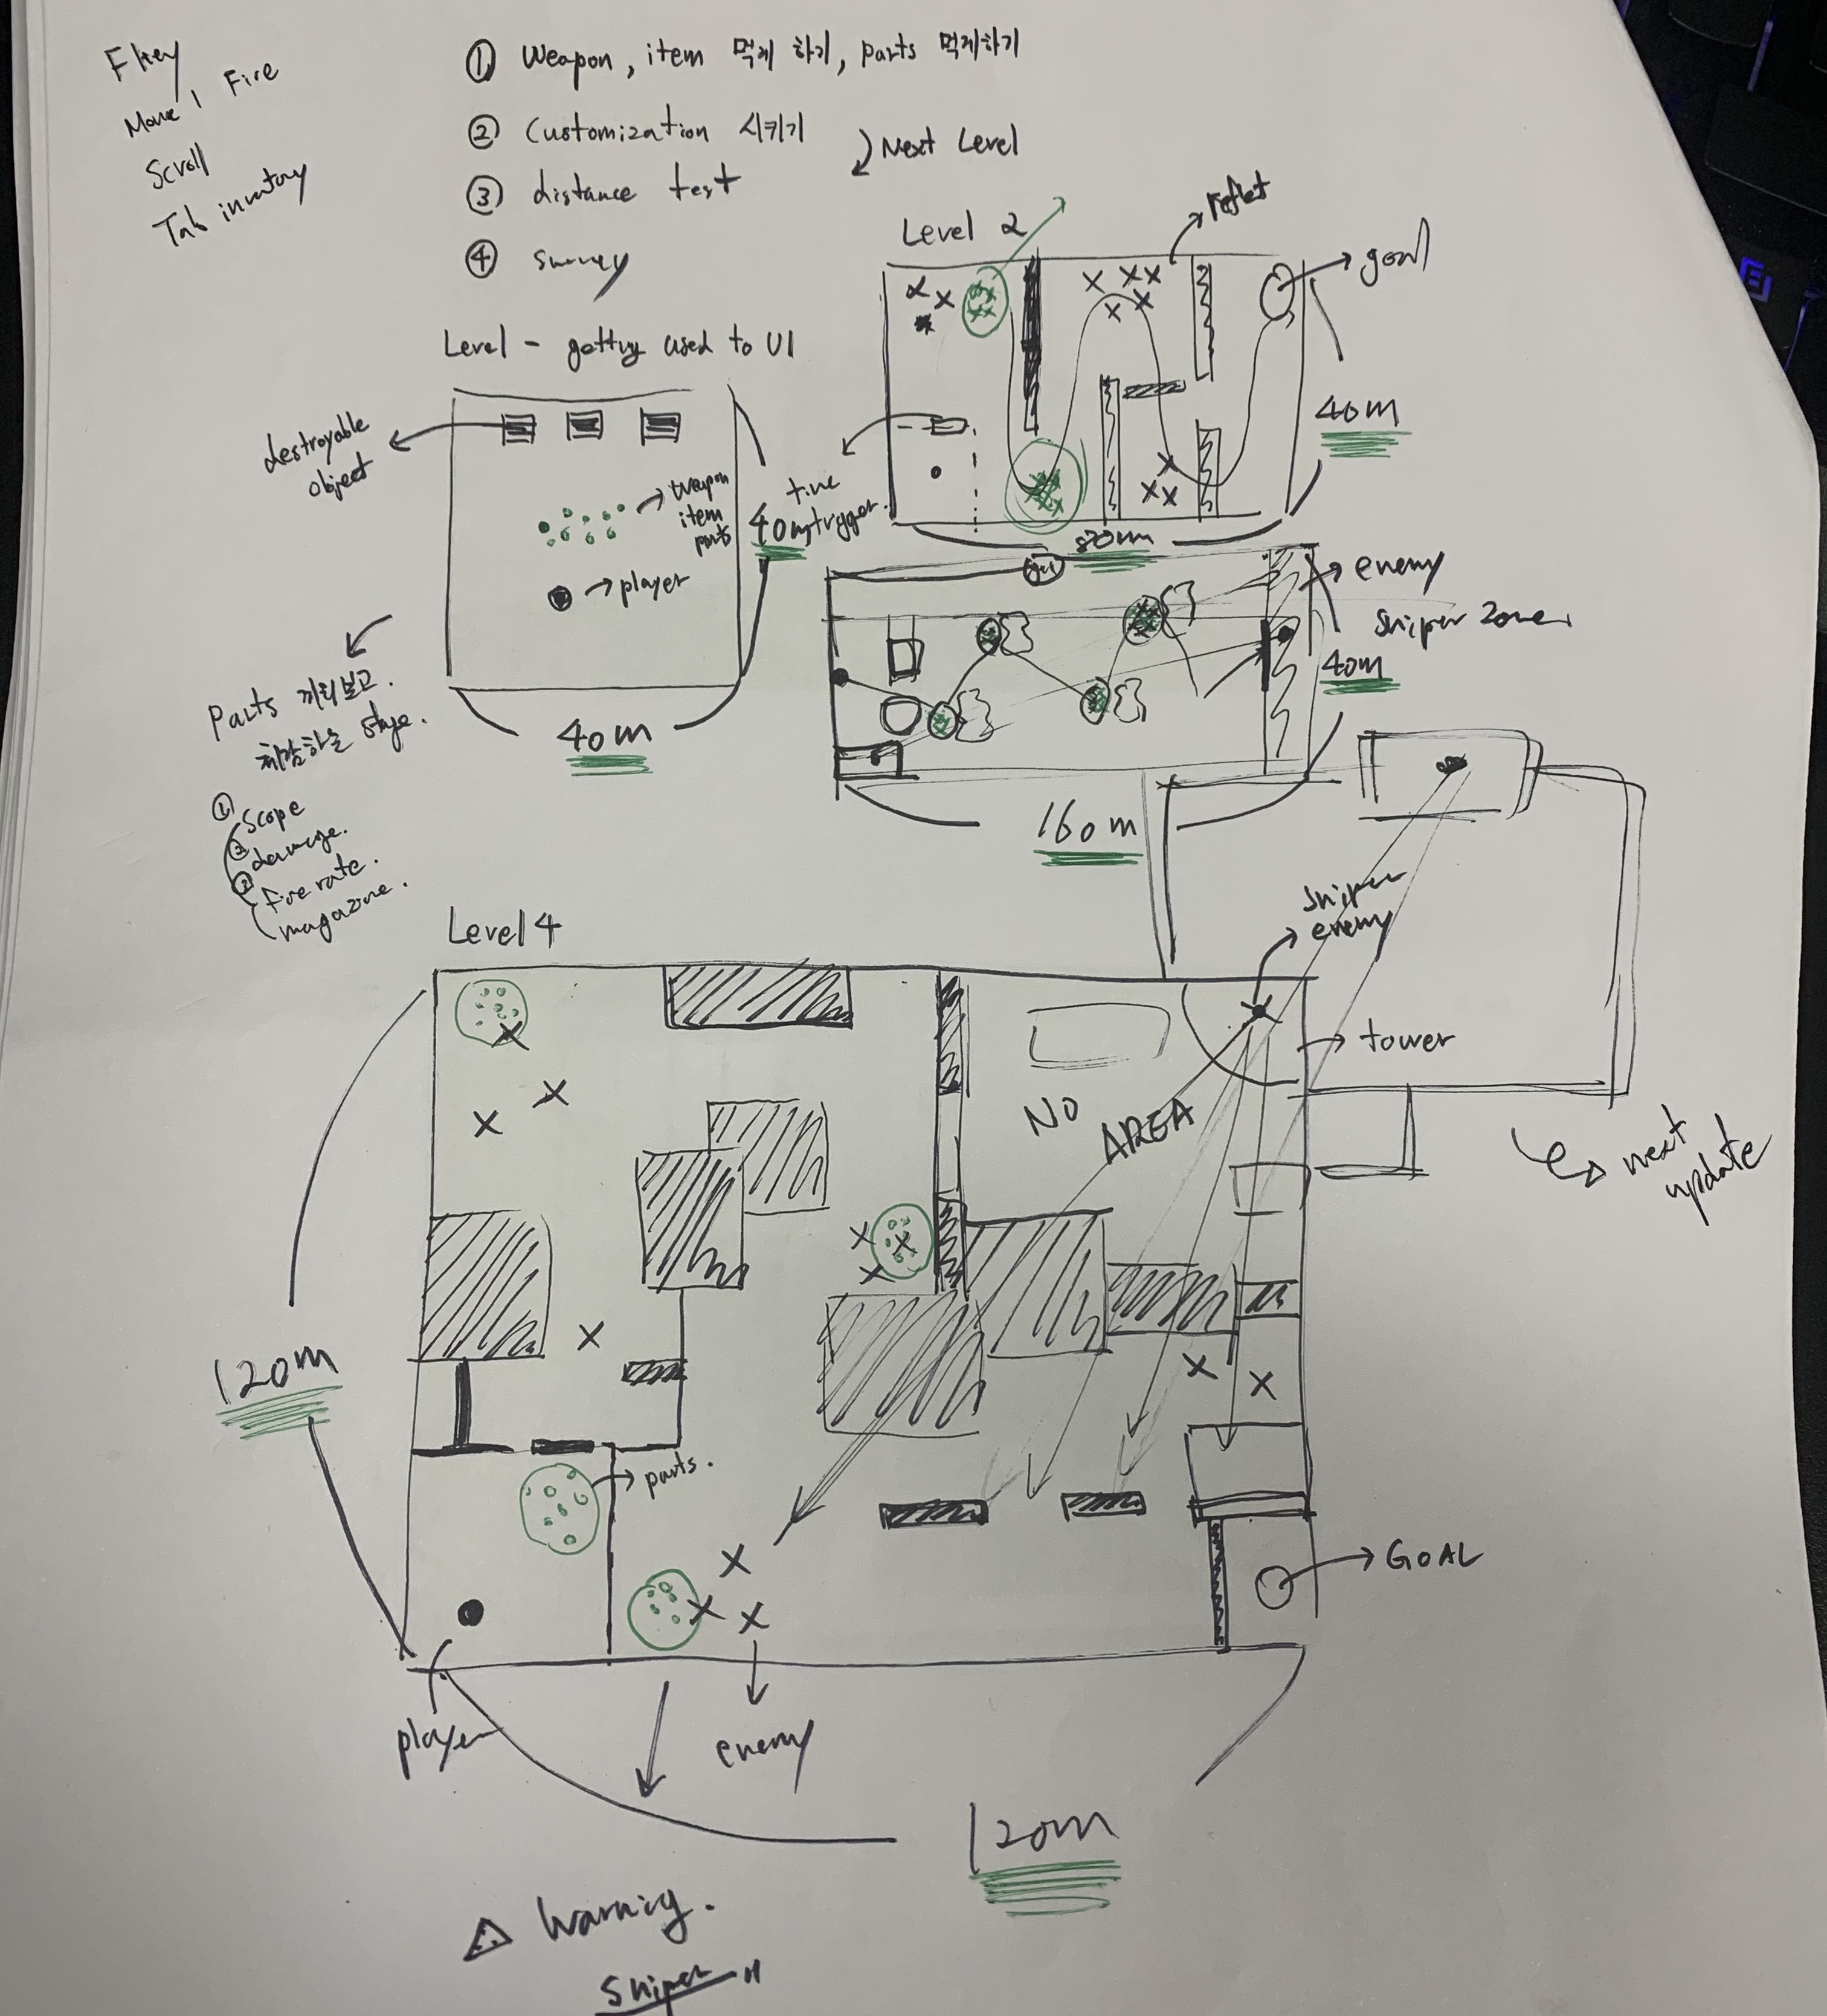 F key
Move, Fire
Scroll
Tab inventory
① Weapon, item 먹게 하기, parts 먹게하기
② Customization 시키기
③ distance test
④ survey
Next Level
Level 2
goal
40m
80m
trigger
Level - getting used to UI
destroyable
object
weapon
item
parts
player
40m
40m
Parts 끼워보고
체감하는 stage.
① Scope
② damage.
③ fire rate.
magazine.
enemy
sniper zone
40m
160m
Level 4
sniper
enemy
tower
NO AREA
next
update
120m
parts.
GOAL
player
enemy
120m
⚠ Warning.
Sniper